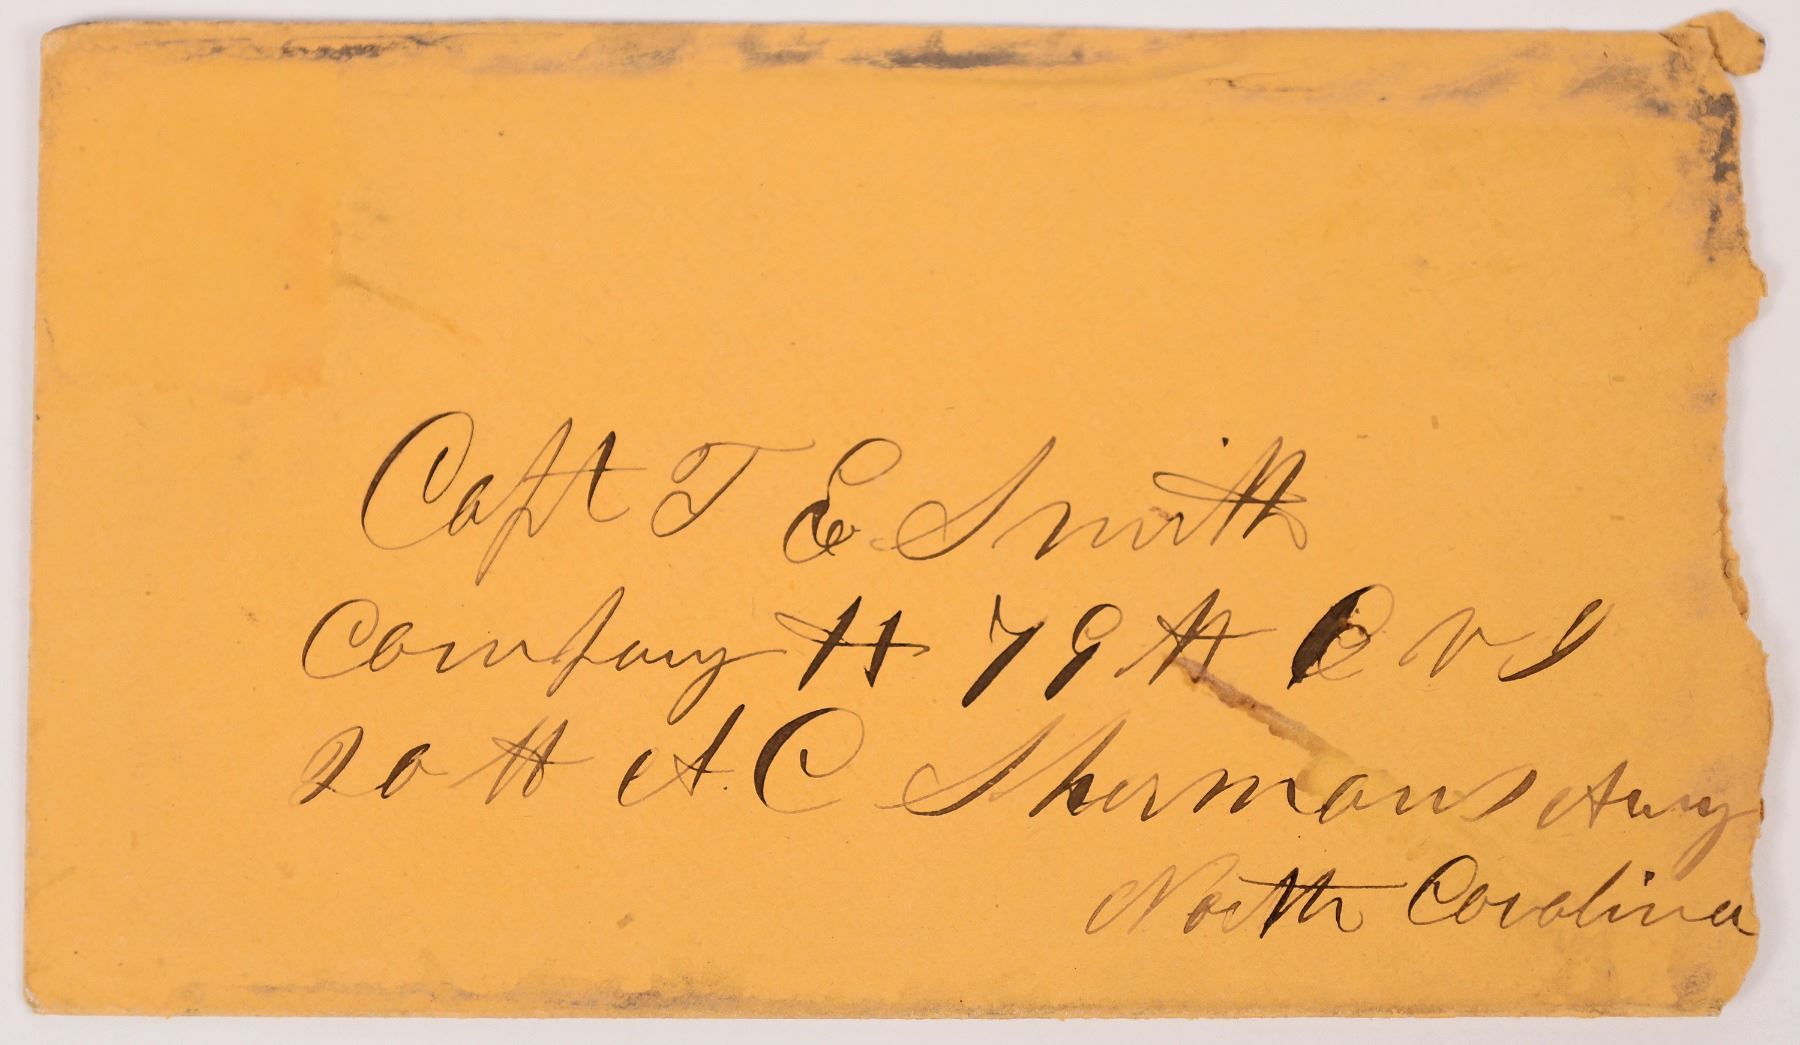 Capt T E. Smith
Company H 79th O V I
20th A. C Shermans Army
North Carolina